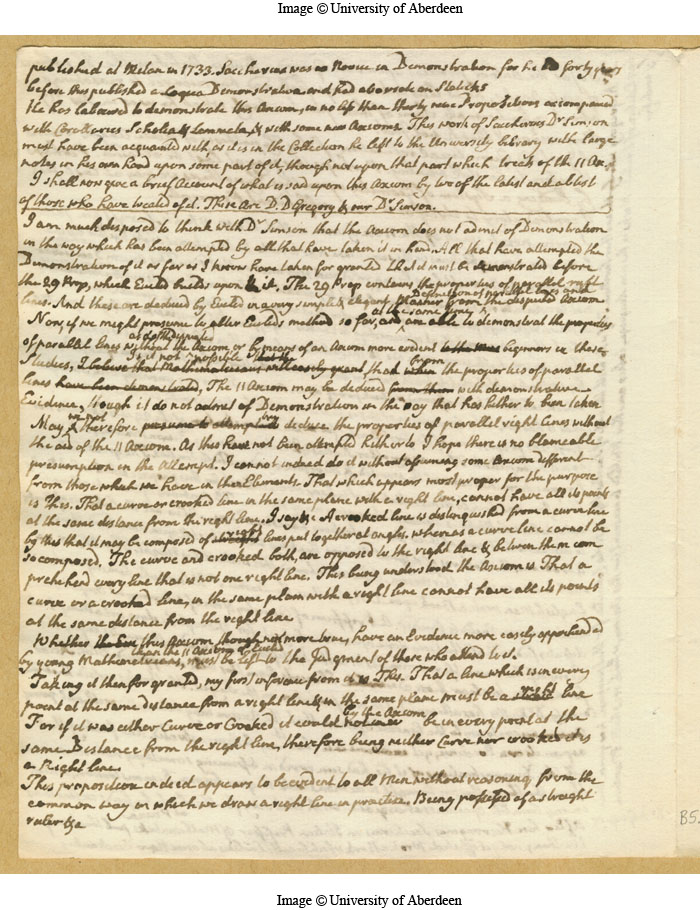 Image © University of Aberdeen
published at Milan in 1733. Saccherius was no Novice in Demonstration for he had forty years
before this published a Logica Demonstrativa and had also wrote on Staticks
He has laboured to demonstrate this Axiom, in no less than thirty nine Propositions accompanied
with Corollaries Scholia & Lemmata, & with some new Axioms. This work of Saccherius Dr Simson
must have been acquainted with as it is in the Collection he left to the University Library with large
notes in his own hand upon some part of it, though not upon that part which treats of the 11 Ax.
I shall now give a brief Account of what is said upon this Axiom by two of the latest and ablest
of those who have treated of it. These Are D. D Gregory & our Dr Simson.
I am much disposed to think with Dr Simson that the Axiom does not admit of Demonstration
in the way which has been attempted by all that have taken it in hand. All that have attempted the
Demonstration of it as far as I know have taken for granted that it must be demonstrated before
the 29 Prop, which Euclid builds upon it. The 29 Prop contains the properties of parallel right
lines. And these are deduced by Euclid in a very simple & elegant manner from the Definition of parallel lines and the disputed Axiom
Now, if we might presume to alter Euclids method so far, and at the same time are able to demonstrate the properties
of parallel lines without the Axiom or by means of an Axiom more evident to beginners in these
Studies, is it not possible that from the properties of parallel
lines have been demonstrated, The 11 Axiom may be deduced from them with demonstrative
Evidence, though it do not admit of Demonstration in the way that has hitherto been taken
May we not therefore presume to attempt to try deduce the properties of parallel right lines without
the aid of the 11 Axiom. As this have not been attempted hitherto I hope there is no blameable
presumption in the Attempt. I cannot indeed do it without assuming some Axiom different
from those which we have in the Elements. That which appears most proper for the purpose
is This. That a curve or crooked line in the same plane with a right line, cannot have all its points
at the same distance from the right line. I say &c A crooked line is distinguished from a curve line
by this that it may be composed of right lines put together at angles, whereas a curve line cannot be
so composed. The curve and crooked both, are opposed to the right line & between them com
prehend every line that is not one right line. This being understood the Axiom is That a
curve or a crooked line, in the same plain with a right line cannot have all its points
at the same distance from the right line
Whether this Axiom, though not more true, have an Evidence more easily apprehended
by young Mathematicians, than the 11 Axiom of Euclid must be left to the Judgment of those who attend to it.
Taking it then for granted, my first inference from it is This. That a line which is in every
point at the same distance from a right line & in the same plane must be a right line
For if it was either Curve or Crooked it could not by the Axiom be in every point at the
same Distance from the right line, therefore being neither Curve nor crooked it is
a Right line.
This proposition indeed appears to be evident to all Men without reasoning from the
common way in which we draw a right line in practice. Being possessed of a straight
ruler &c
B5.
Image © University of Aberdeen